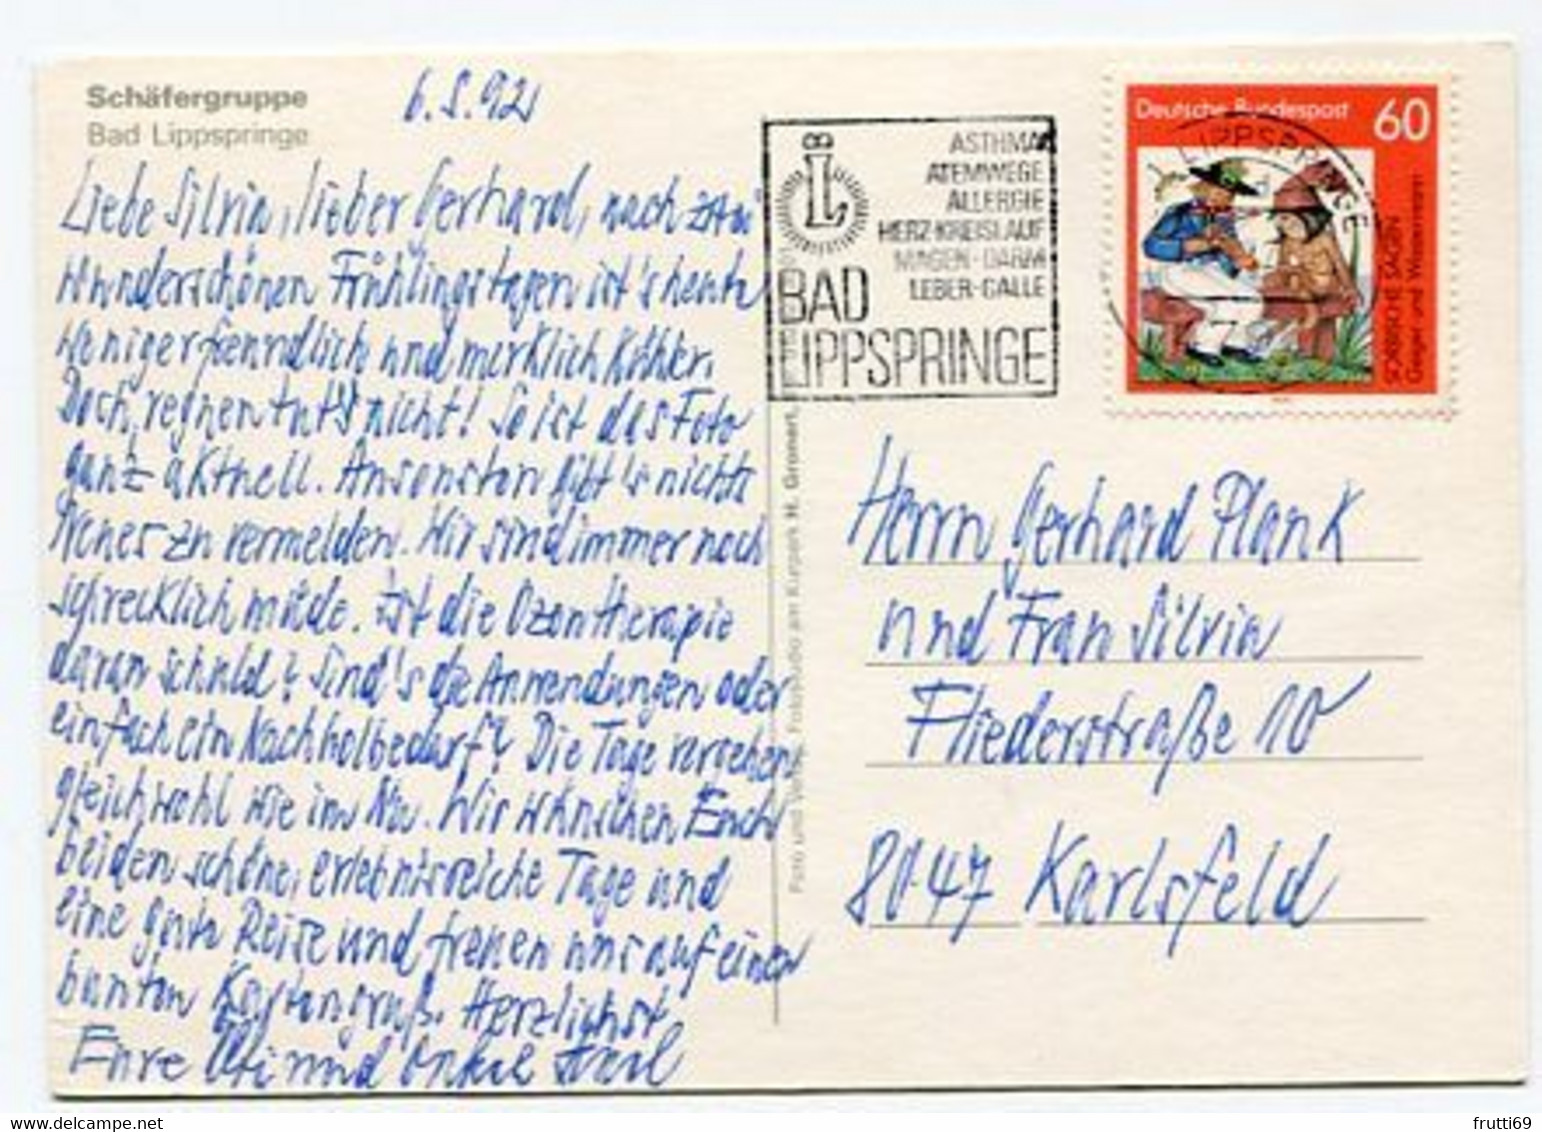 Schäfergruppe
Bad Lippspringe
6.5.92
Liebe Silvia, lieber Gerhard, nach zwei
wunderschönen Frühlingstagen ist's heute
weniger freundlich und merklich kühler.
Doch, regnen tut's nicht! So ist das Foto
ganz aktuell. Ansonsten gibt's nichts
Neues zu vermelden. Wir sind immer noch
schrecklich müde. Ist die Ozontherapie
daran schuld? Sind's die Anwendungen oder
einfach ein Nachholbedarf? Die Tage vergehen
gleichwohl wie im Nu. Wir wünschen Euch
beiden schöne, erlebnisreiche Tage und
eine gute Reise und freuen uns auf einen
bunten Kartengruß. Herzlichst
Eure und Onkel
Foto und Verlag: Fotostudio am Kurpark H. Gronert,
ASTHMA
ATEMWEGE
ALLERGIE
HERZ-KREISLAUF
MAGEN-DARM
LEBER-GALLE
BAD
LIPPSPRINGE
Deutsche Bundespost 60
SORBISCHE SAGEN
Geiger und Wassermann
LIPPSPRINGE
Herrn Gerhard Plank
und Frau Silvia
Fliederstraße 10
8047 Karlsfeld
frutti69
www.delcampe.net